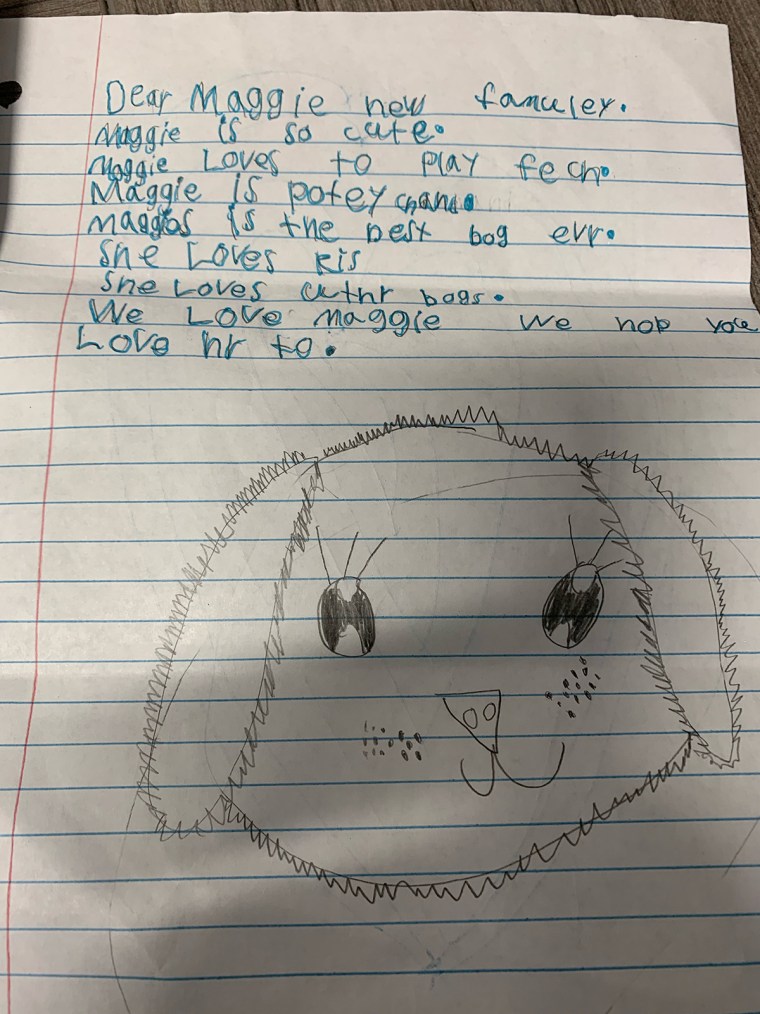 Dear Maggie new famuley.
Maggie is so cute.
Maggie Loves to play fech.
Maggie is potey chand.
Maggios is the best bog evr.
She Loves kis
She Loves uthr bogs.
We Love Maggie We hop you
Love hr to.